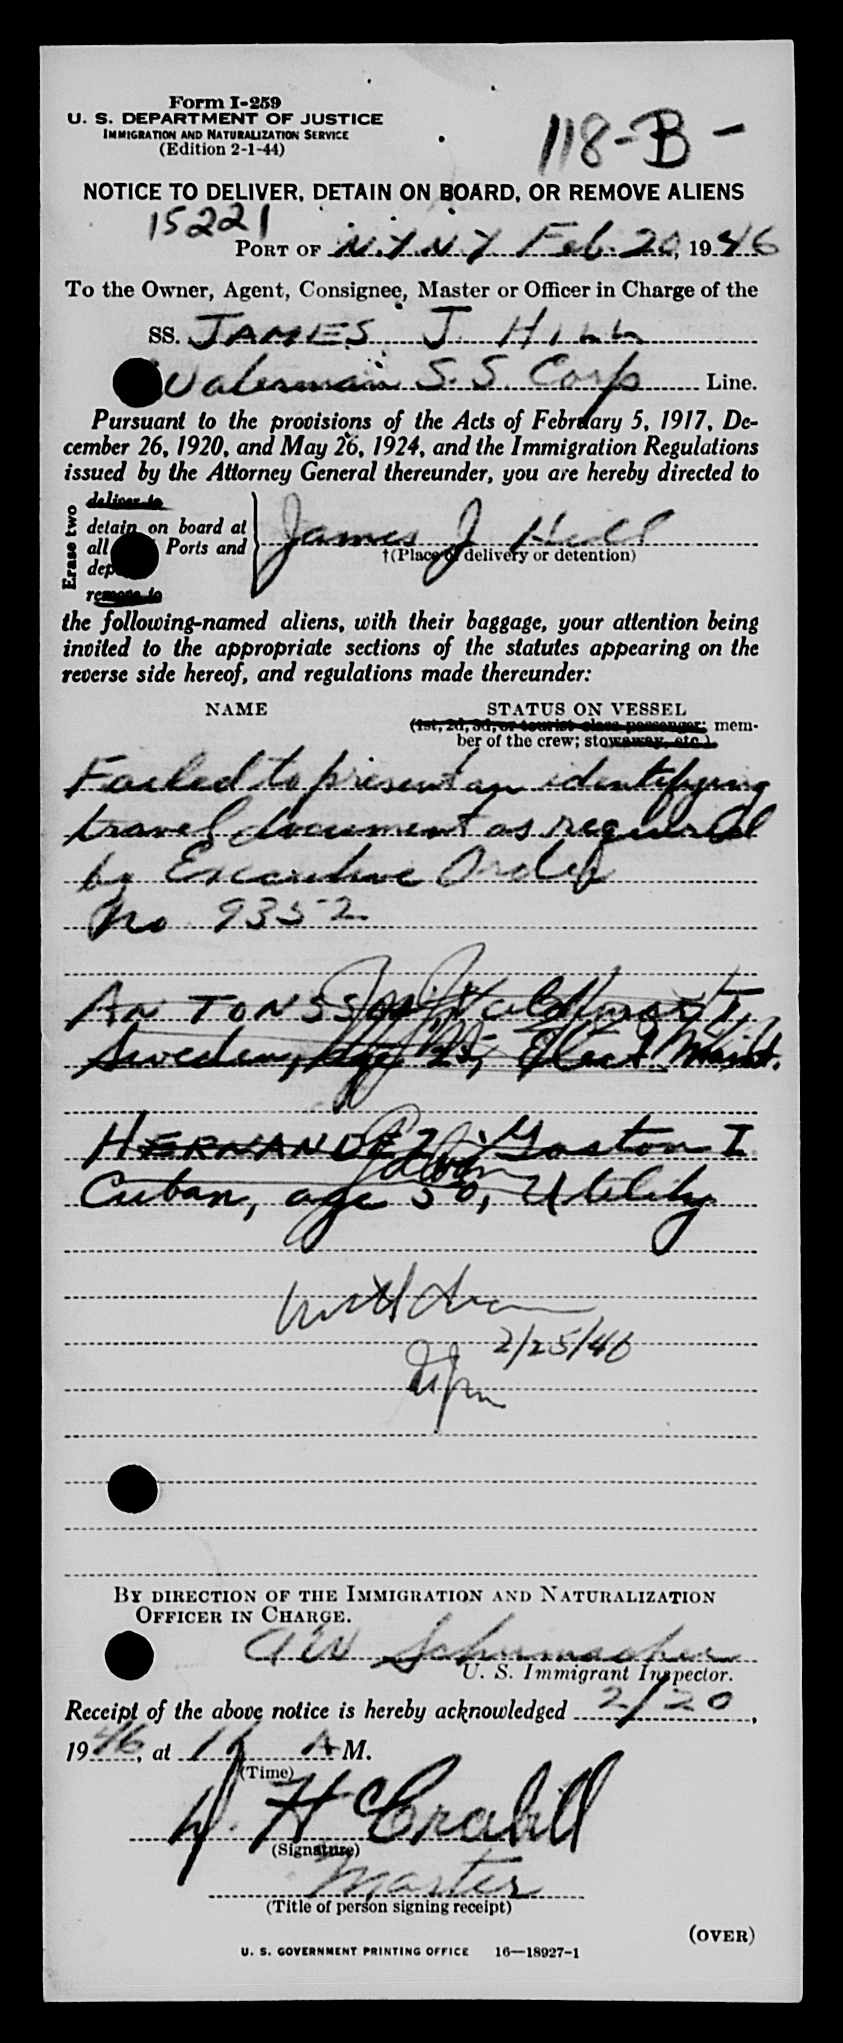 Form I-259
U. S. DEPARTMENT OF JUSTICE
IMMIGRATION AND NATURALIZATION SERVICE
(Edition 2-1-44)
118-B-
NOTICE TO DELIVER, DETAIN ON BOARD, OR REMOVE ALIENS
15221
PORT OF N.Y.N.Y Feb. 20, 1946
To the Owner, Agent, Consignee, Master or Officer in Charge of the
SS. JAMES J. HILL
Waterman S.S. Corp Line.
Pursuant to the provisions of the Acts of February 5, 1917, De-
cember 26, 1920, and May 26, 1924, and the Immigration Regulations
issued by the Attorney General thereunder, you are hereby directed to
Erase two
deliver to
detain on board at
all Ports and
James J Hill
†(Place of delivery or detention)
dep
remove to
the following-named aliens, with their baggage, your attention being
invited to the appropriate sections of the statutes appearing on the
reverse side hereof, and regulations made thereunder:
NAME STATUS ON VESSEL
(1st, 2d, 3d, or tourist class passenger; mem-
ber of the crew; stowaway, etc.)
Failed to present an identifying
travel document as required
by Executive Order
No 9352
ANTONSSON, T.
Sweden, age 25, Elect. Maint.
HERNANDEZ, Gaston I
Cuban, age 50, Utility
2/25/46
BY DIRECTION OF THE IMMIGRATION AND NATURALIZATION
OFFICER IN CHARGE.
A W Schumacher
U. S. Immigrant Inspector.
Receipt of the above notice is hereby acknowledged 2/20,
1946, at A M.
(Time)
D. H Crahill
(Signature)
Master
(Title of person signing receipt)
(OVER)
U. S. GOVERNMENT PRINTING OFFICE 16—18927-1